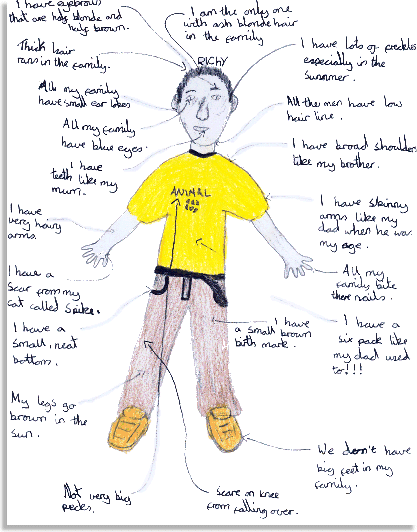 I have eyebrows
that are half blonde and
half brown.
I am the only one
with ash blonde hair
in the family
RICHY
I have lots of freckles
especially in the
summer.
Thick hair
runs in the family.
All my family
have small ear lobes
All the men have low
hair line.
All my family
have blue eyes.
I have broad shoulders
like my brother.
I have
teeth like my
mum.
ANIMAL
I have skinny
arms like my
dad when he was
my age.
I have
very hairy
arms.
All my
family bite
there nails.
I have a
scar from my
cat called Spike.
I have a
small, neat
bottom.
I have
a small brown
birth mark.
I have a
six pack like
my dad used
to!!!
My legs go
brown in the
sun.
We don't have
big feet in my
family.
Not very big
pecks.
Scare on knee
from falling over.